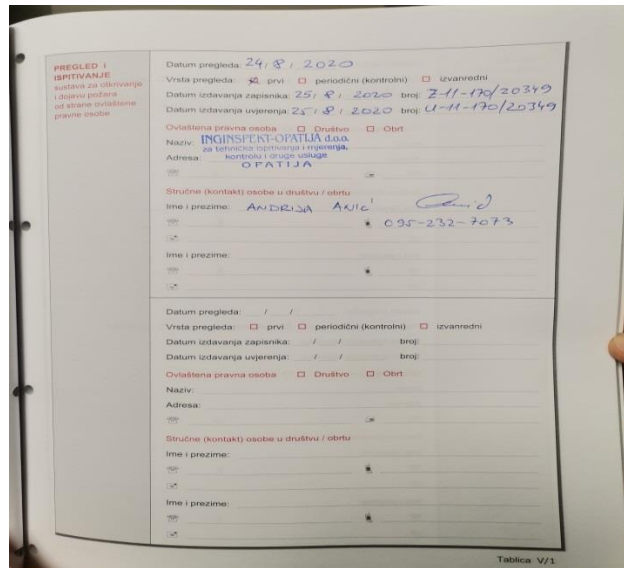 PREGLED I
ISPITIVANJE
sustava za otkrivanje
i dojavu požara
od strane ovlaštene
pravne osobe
Datum pregleda: 24 / 8 / 2020
Vrsta pregleda: ☒ prvi ☐ periodični (kontrolni) ☐ izvanredni
Datum izdavanja zapisnika: 25 / 8 / 2020 broj: Z-11-170/20349
Datum izdavanja uvjerenja: 25 / 8 / 2020 broj: U-11-170/20349
Ovlaštena pravna osoba ☐ Društvo ☐ Obrt
Naziv: INGINSPEKT-OPATIJA d.o.o.
za tehnička ispitivanja i mjerenja,
Adresa: kontrolu i druge usluge
OPATIJA
Stručne (kontakt) osobe u društvu / obrtu
Ime i prezime: ANDRIJA ANIĆ
095-232-7073
Ime i prezime:
Datum pregleda: / /
Vrsta pregleda: ☐ prvi ☐ periodični (kontrolni) ☐ izvanredni
Datum izdavanja zapisnika: / / broj:
Datum izdavanja uvjerenja: / / broj:
Ovlaštena pravna osoba ☐ Društvo ☐ Obrt
Naziv:
Adresa:
Stručne (kontakt) osobe u društvu / obrtu
Ime i prezime:
Ime i prezime:
Tablica V/1